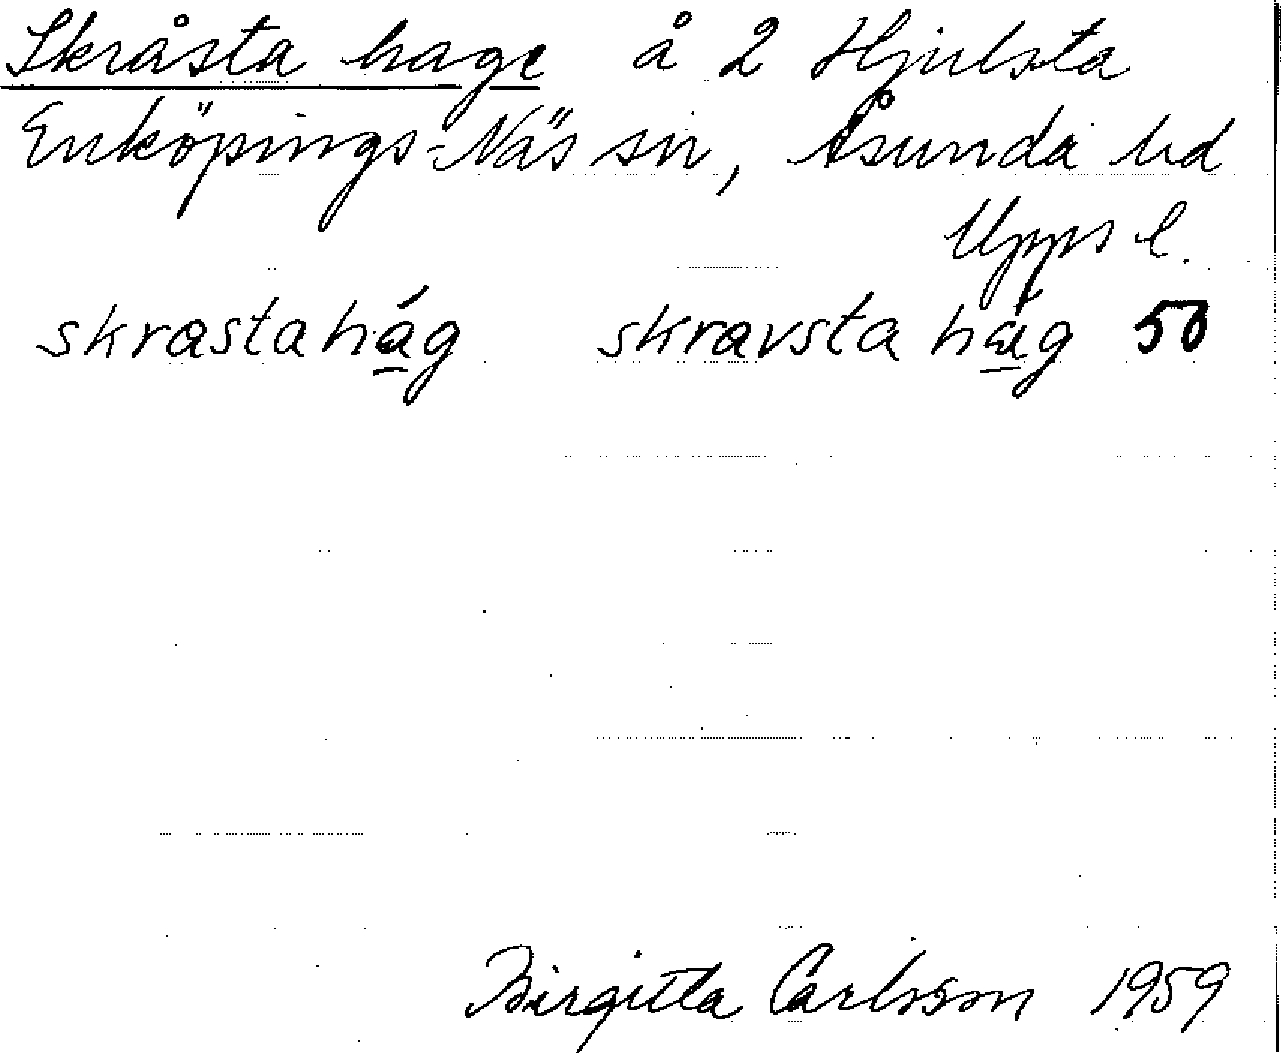 Skråsta hage å 2 Hjulsta
Enköpings-Näs sn, Åsunda hd
Upps l.
skrastahág skravsta hág 50
Birgitta Carlsson 1959